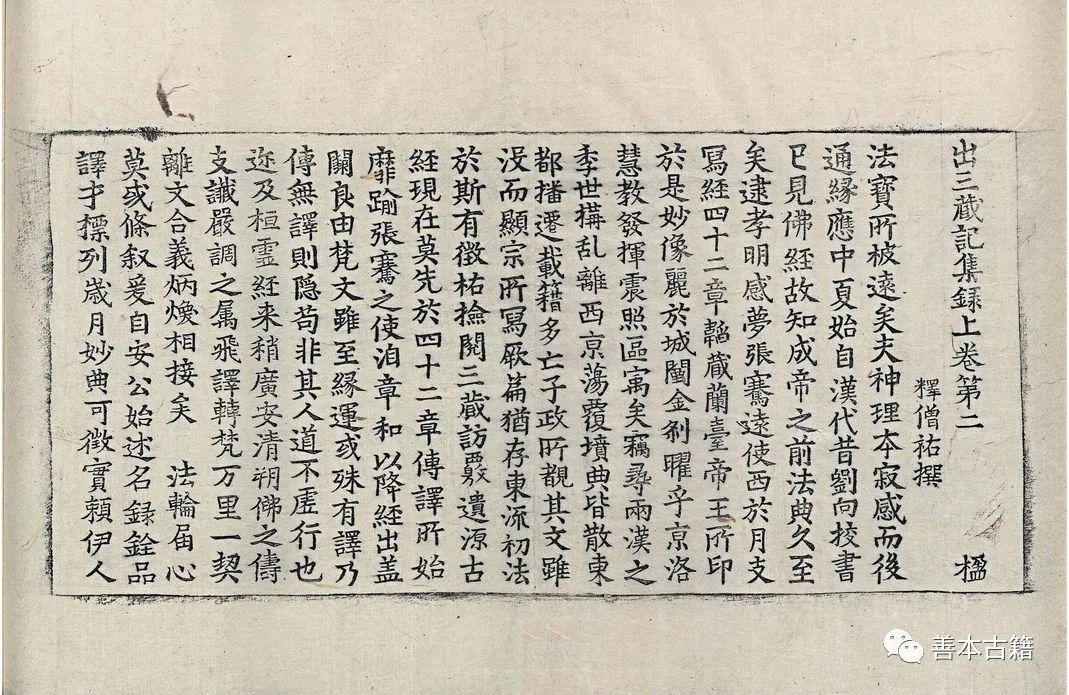 出三蔵記集録上卷第二　楹
釋僧祐撰
法寳所被遠矣夫神理本寂感而後
通縁應中夏始自漢代昔劉向挍書
已見佛經故知成帝之前法典久至
矣逮孝明感夢張騫遠使西於月支
冩經四十二章韜蔵蘭臺帝王所印
於是妙像麗於城闉金刹曜乎京洛
慧教發揮震照區寓矣竊尋兩漢之
季世搆乱離西京蕩覆墳典皆散東
都播遷載籍多亡子政所覩其文雖
没而顯宗所冩厥篇猶存東流初法
於斯有徵祐撿閱三蔵訪覈遺源古
經現在莫先於四十二章傳譯所始
靡踰張騫之使洎章和以降經出盖
闕良由梵文雖至縁運或殊有譯乃
傳無譯則隐苟非其人道不虚行也
迩及桓霊經来稍廣安清朔佛之儔
支讖嚴調之属飛譯轉梵万里一契
離文合義炳煥相接矣　法輪届心
莫或條叙爰自安公始述名録銓品
譯才摽列歳月妙典可徵實頼伊人
善本古籍